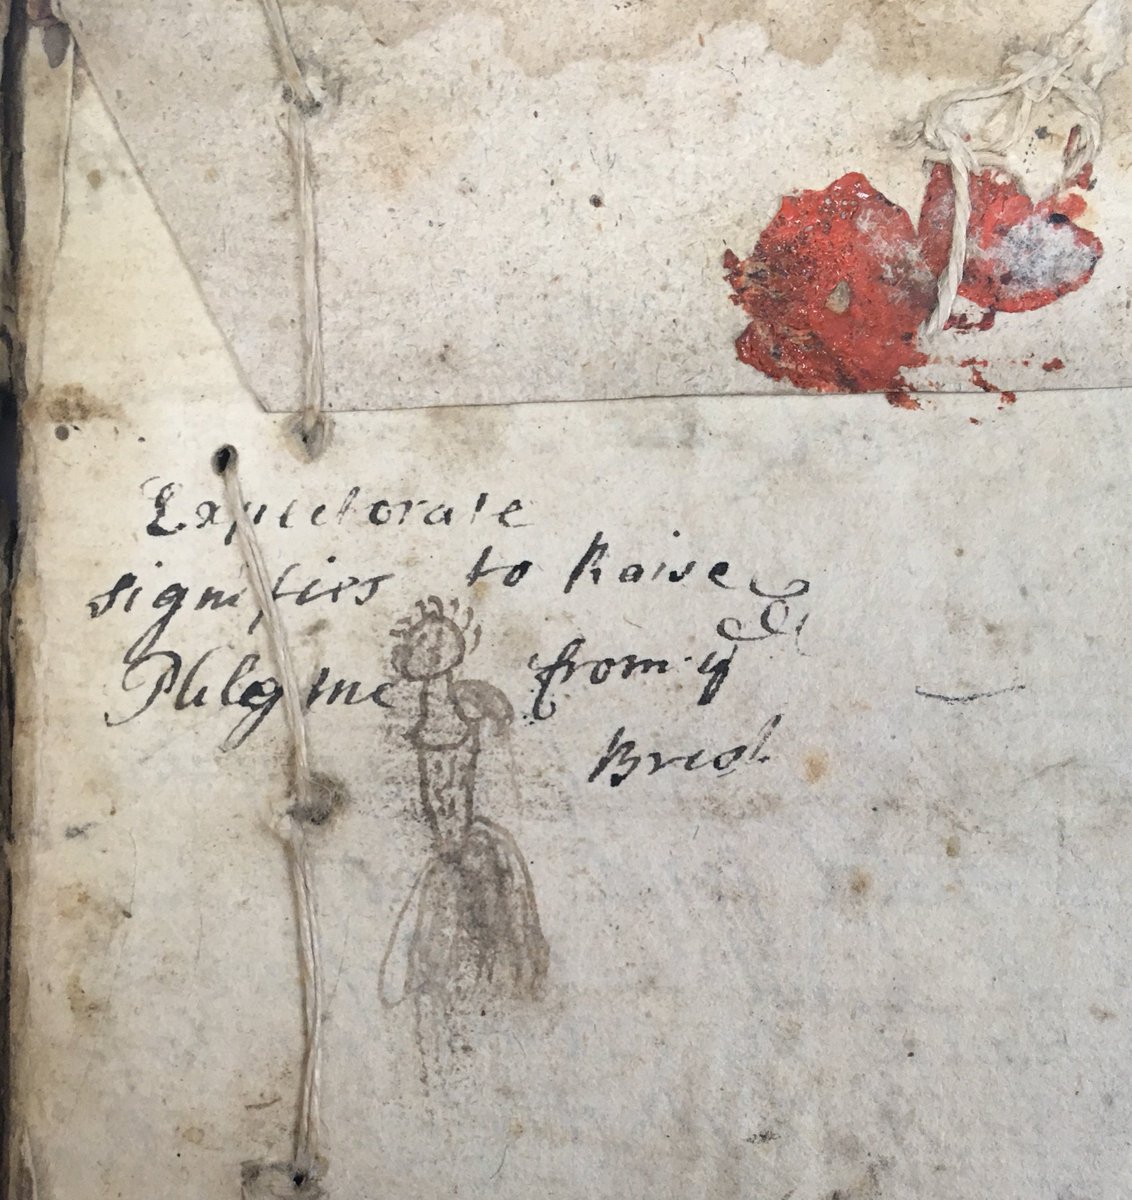 Expectorate
signifies to Raise
Phlegme from ye
Brest